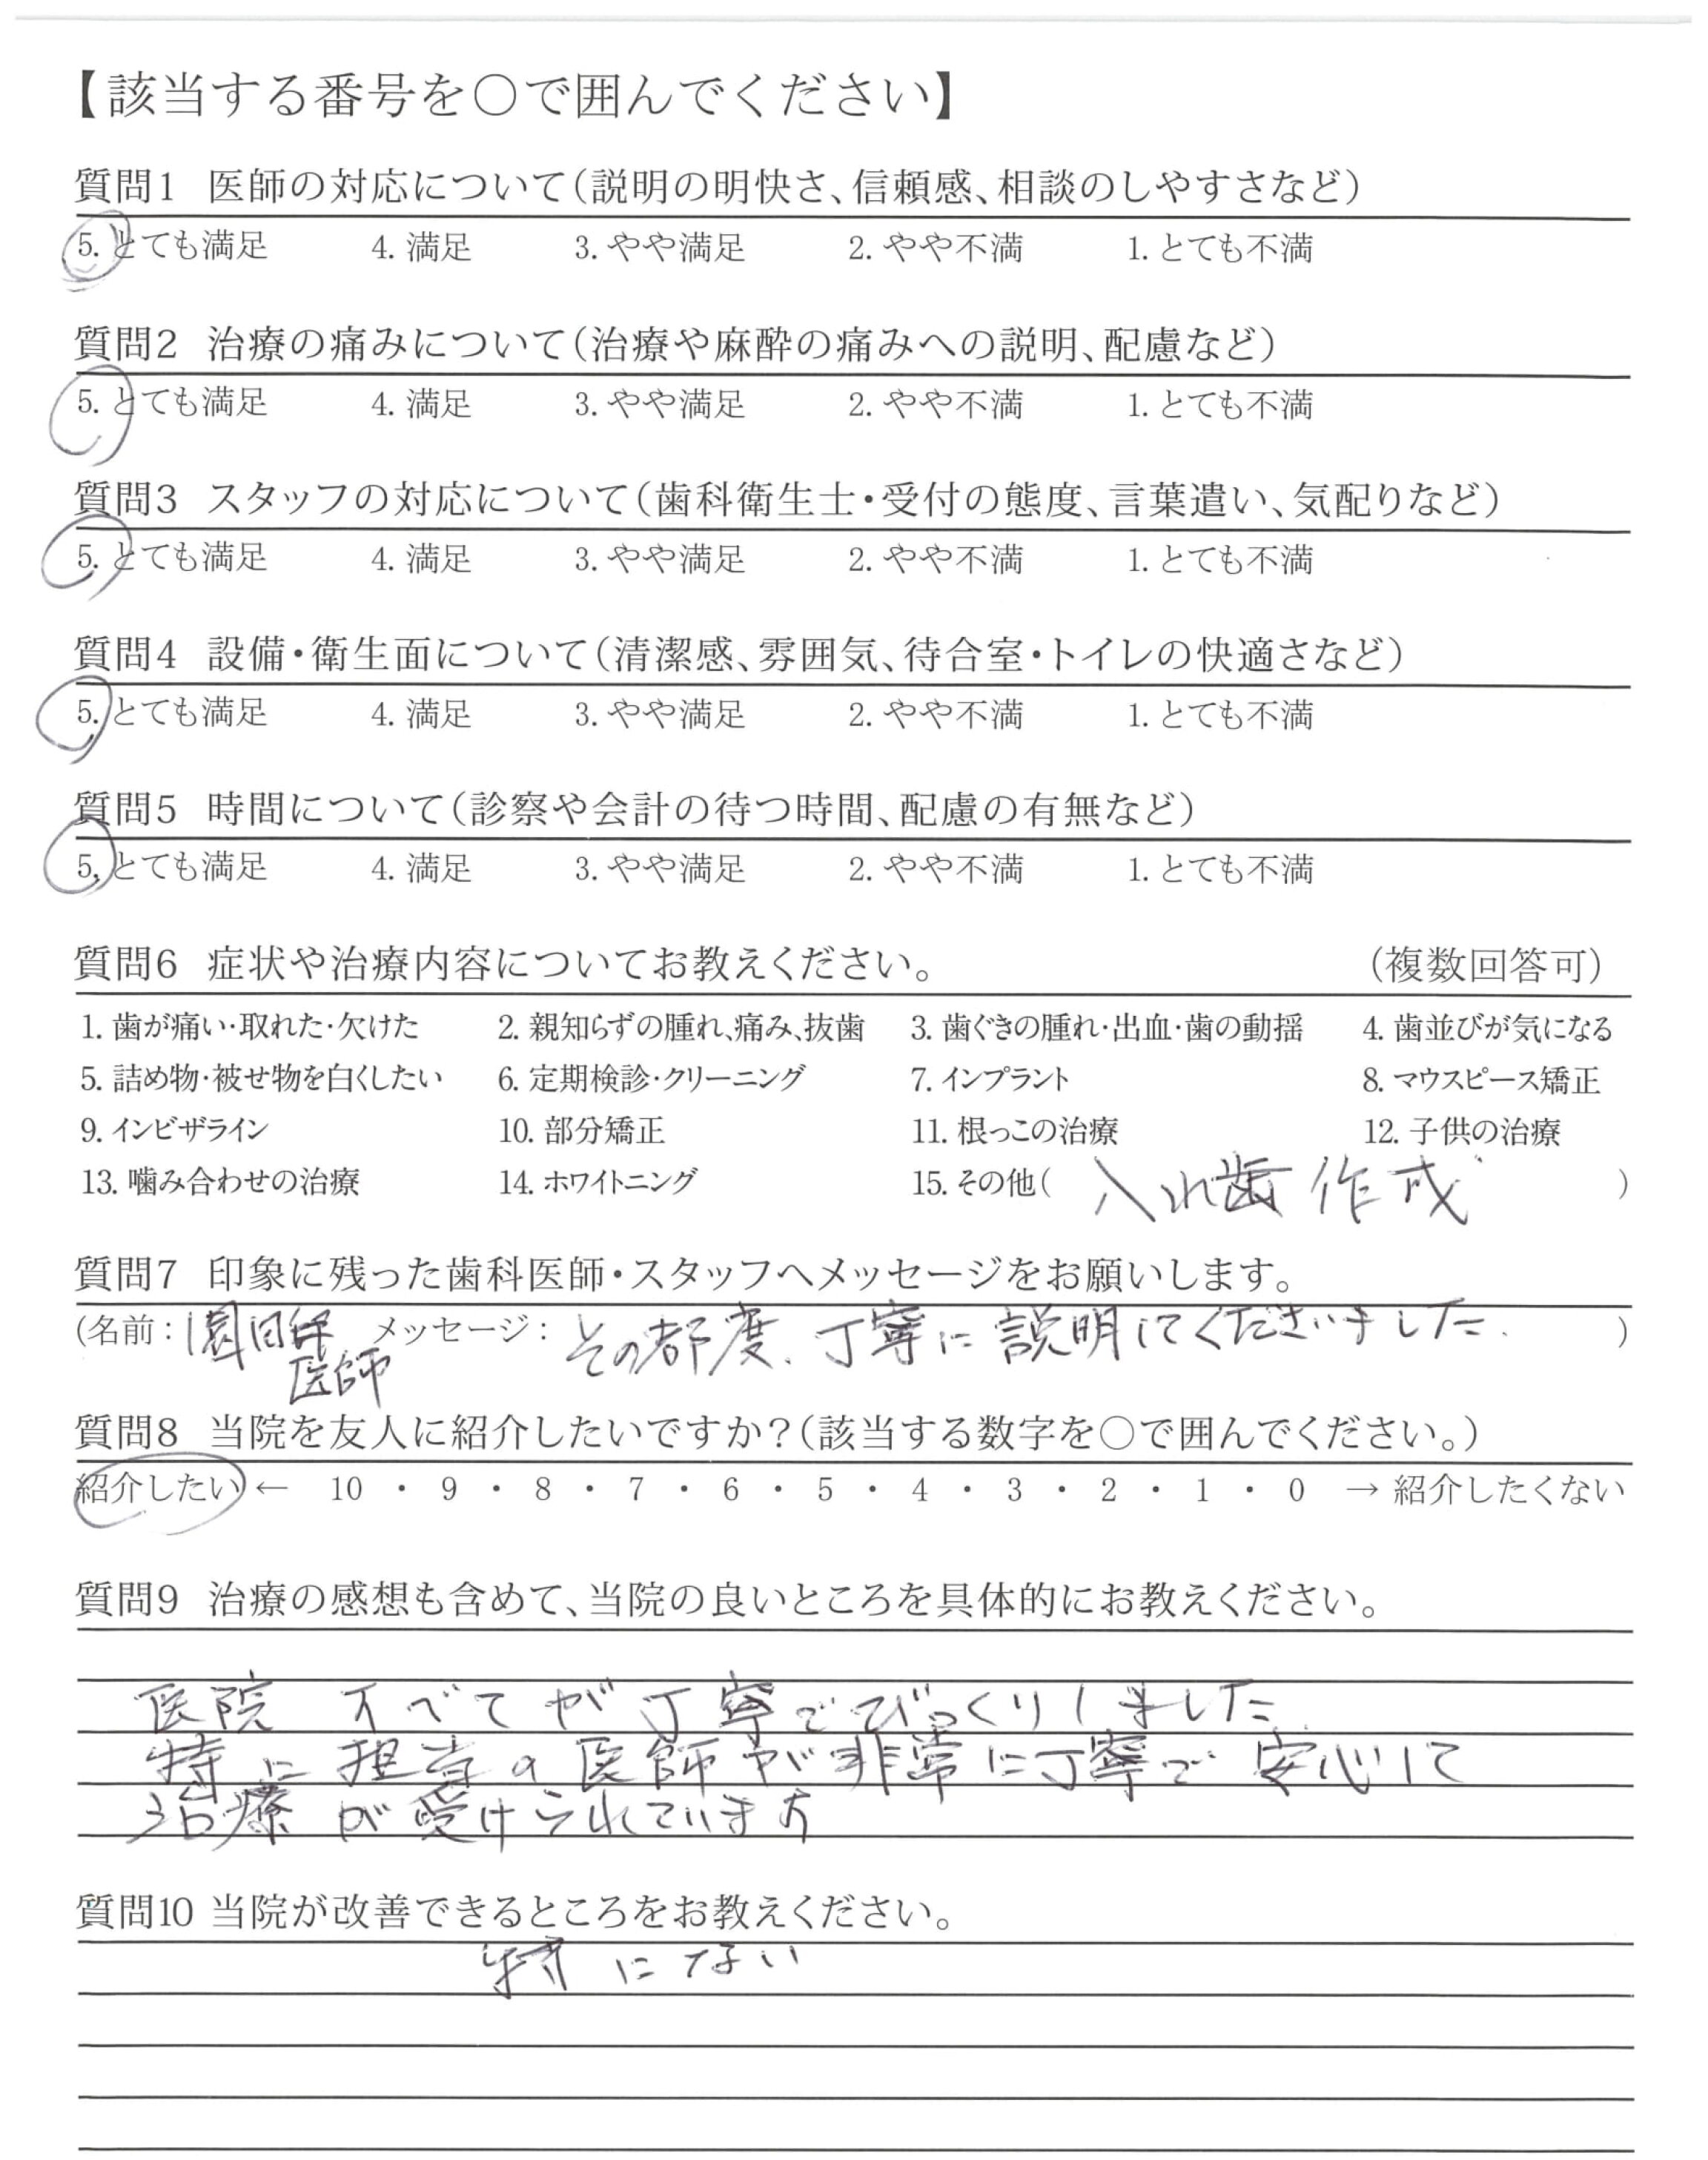 【該当する番号を○で囲んでください】
質問1 医師の対応について(説明の明快さ、信頼感、相談のしやすさなど)
5. とても満足 4. 満足 3. やや満足 2. やや不満 1. とても不満
質問2 治療の痛みについて(治療や麻酔の痛みへの説明、配慮など)
5. とても満足 4. 満足 3. やや満足 2. やや不満 1. とても不満
質問3 スタッフの対応について(歯科衛生士・受付の態度、言葉遣い、気配りなど)
5. とても満足 4. 満足 3. やや満足 2. やや不満 1. とても不満
質問4 設備・衛生面について(清潔感、雰囲気、待合室・トイレの快適さなど)
5. とても満足 4. 満足 3. やや満足 2. やや不満 1. とても不満
質問5 時間について(診察や会計の待つ時間、配慮の有無など)
5. とても満足 4. 満足 3. やや満足 2. やや不満 1. とても不満
質問6 症状や治療内容についてお教えください。 (複数回答可)
1. 歯が痛い・取れた・欠けた 2. 親知らずの腫れ、痛み、抜歯 3. 歯ぐきの腫れ・出血・歯の動揺 4. 歯並びが気になる
5. 詰め物・被せ物を白くしたい 6. 定期検診・クリーニング 7. インプラント 8. マウスピース矯正
9. インビザライン 10. 部分矯正 11. 根っこの治療 12. 子供の治療
13. 噛み合わせの治療 14. ホワイトニング 15. その他( 入れ歯 作成 )
質問7 印象に残った歯科医師・スタッフへメッセージをお願いします。
(名前: メッセージ: その都度、丁寧に説明してくださいました. )
医師
質問8 当院を友人に紹介したいですか?(該当する数字を○で囲んでください。)
紹介したい ← 10 ・ 9 ・ 8 ・ 7 ・ 6 ・ 5 ・ 4 ・ 3 ・ 2 ・ 1 ・ 0 → 紹介したくない
質問9 治療の感想も含めて、当院の良いところを具体的にお教えください。
医院 すべてが丁寧でびっくりしました
特に担当の医師が非常に丁寧で 安心して
治療が受けられています
質問10 当院が改善できるところをお教えください。
特にない